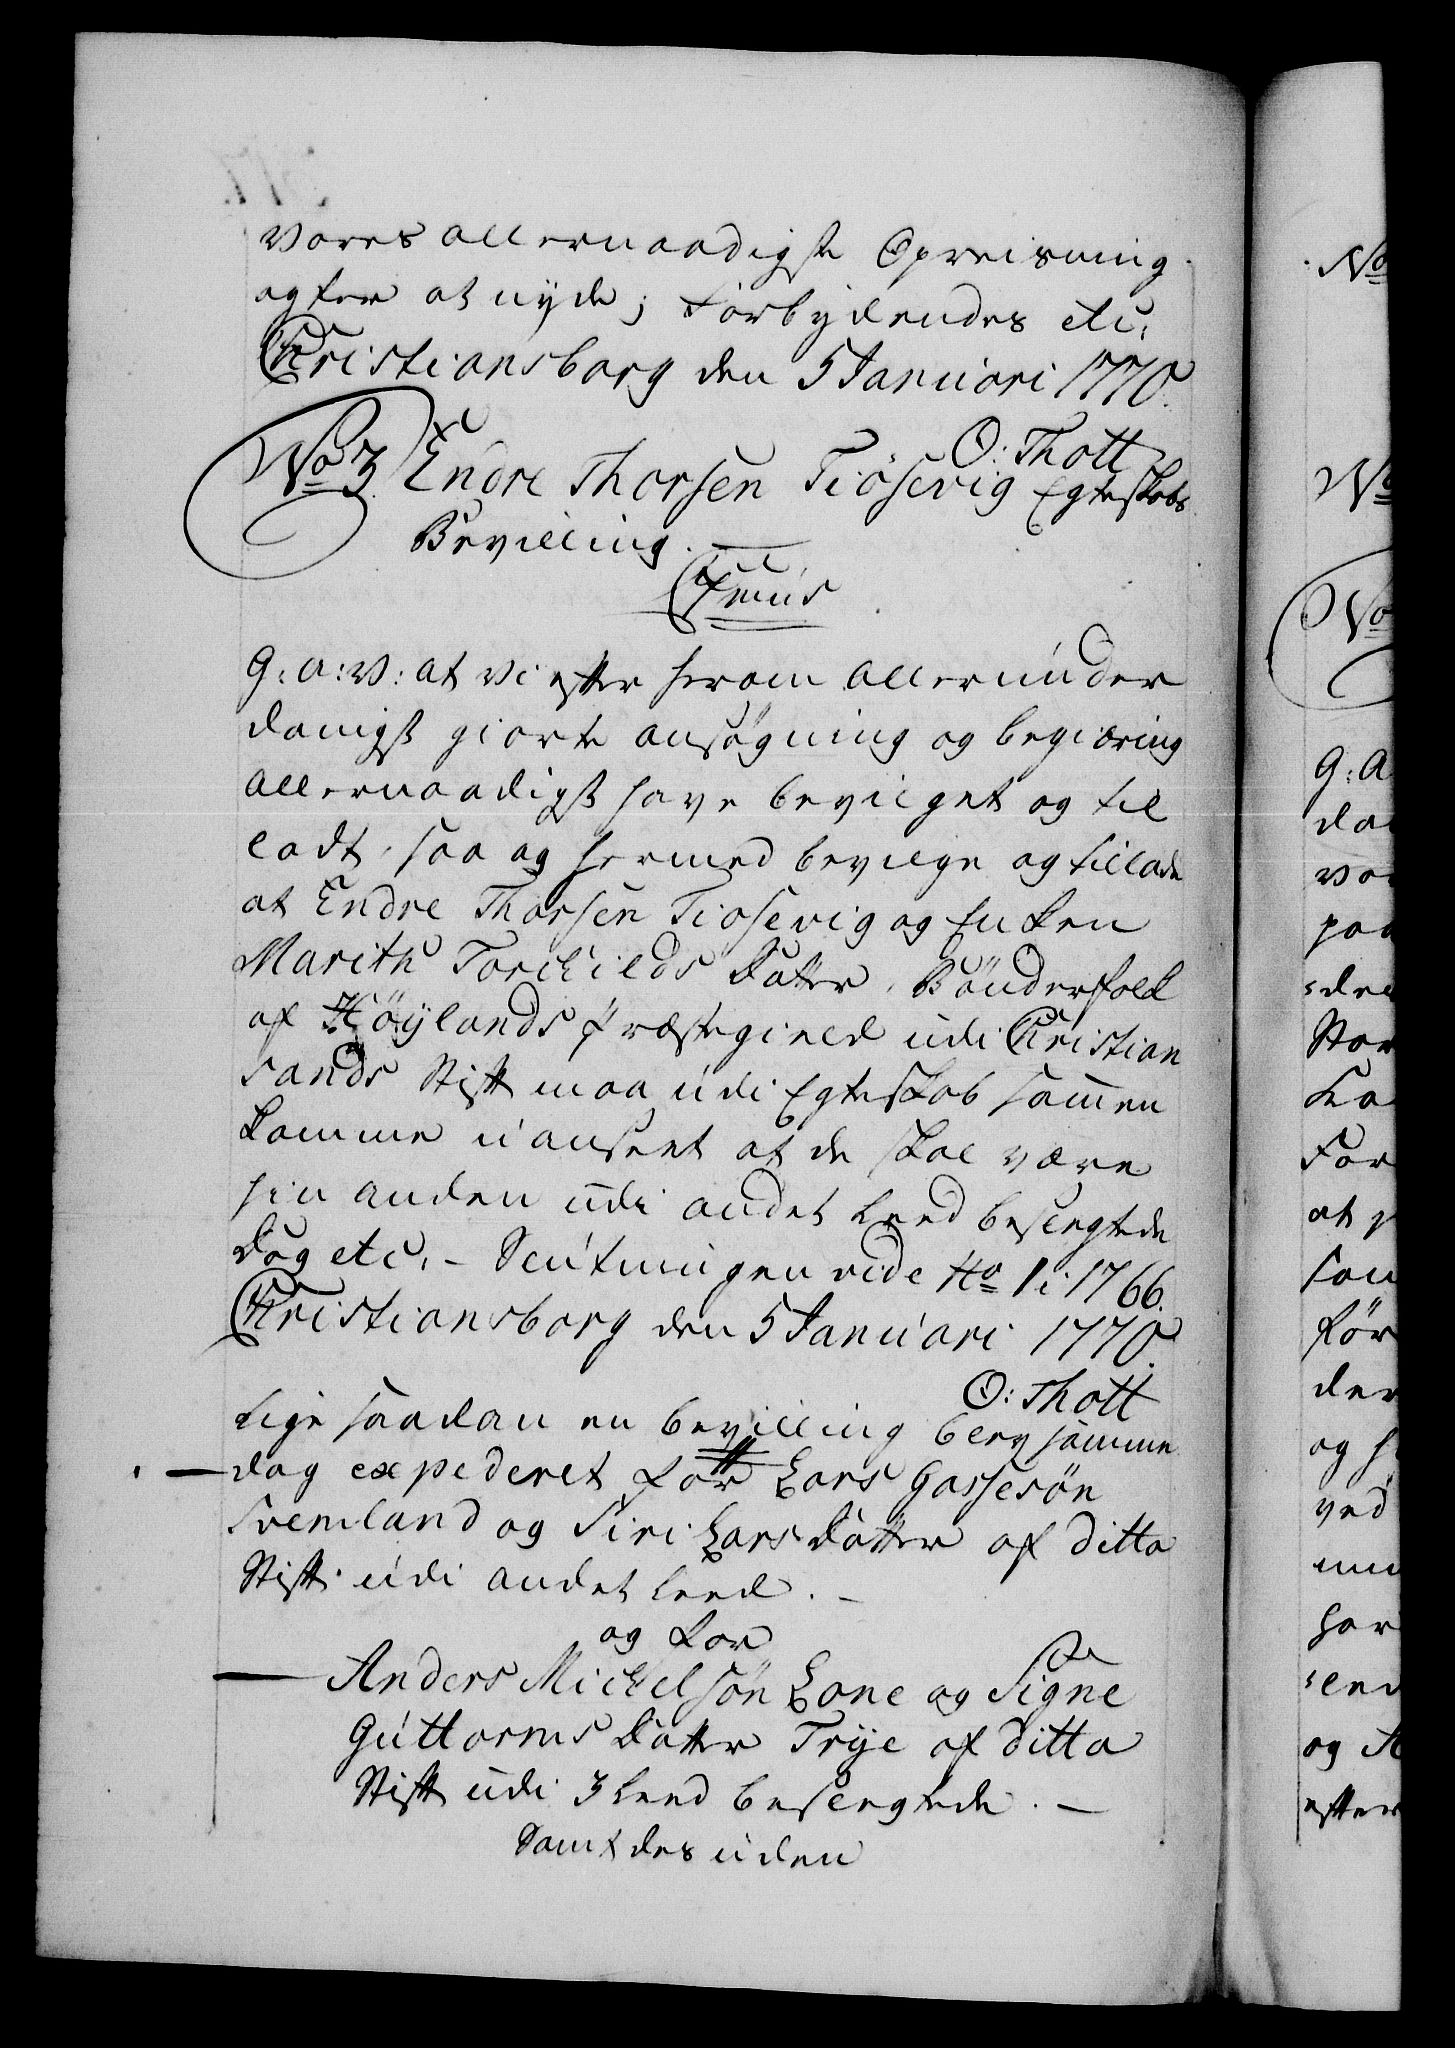 vores allernaadigste Opreisning
agter at nyde; Forbydendes etc:
Christiansborg den 5 Januari 1770.
O: Thott
No 3. Endre Thorsen Tiösevig Egteskabs
Bevilling.
G: A: V: at vi efter herom allerunder
danigst giorte ansøgning og begiæring
allernaadigst have bevilget og til
ladt, saa og hermed bevilge og tillade
at Endre Thorsen Tiosevig og Enken
Marith Torchilds Datter, Bönderfolck
af Höylands Præstegield udi Christian
sands Stift maa udi Egteskab sammen
komme uanseet at de skal være
hinanden udi andet Leed beslegtede
Dog etc. - Slutningen vide No 1 i 1766.
Christiansborg den 5 Januari 1770.
O: Thott
Lige saadan en bevilling blev samme
dag expederet for Lars Gassesön
Svemland og Siri Lars Datter af ditto
Stift udi andet Leed. -
og for
Anders Michelsön Lone og Signe
Guttorms Datter Trye af ditto
Stift udi 3 Leed beslegtede. -
Samt desuden
No
No
No
G: A
Stor
For
at
før
der
og
ved
og
efter